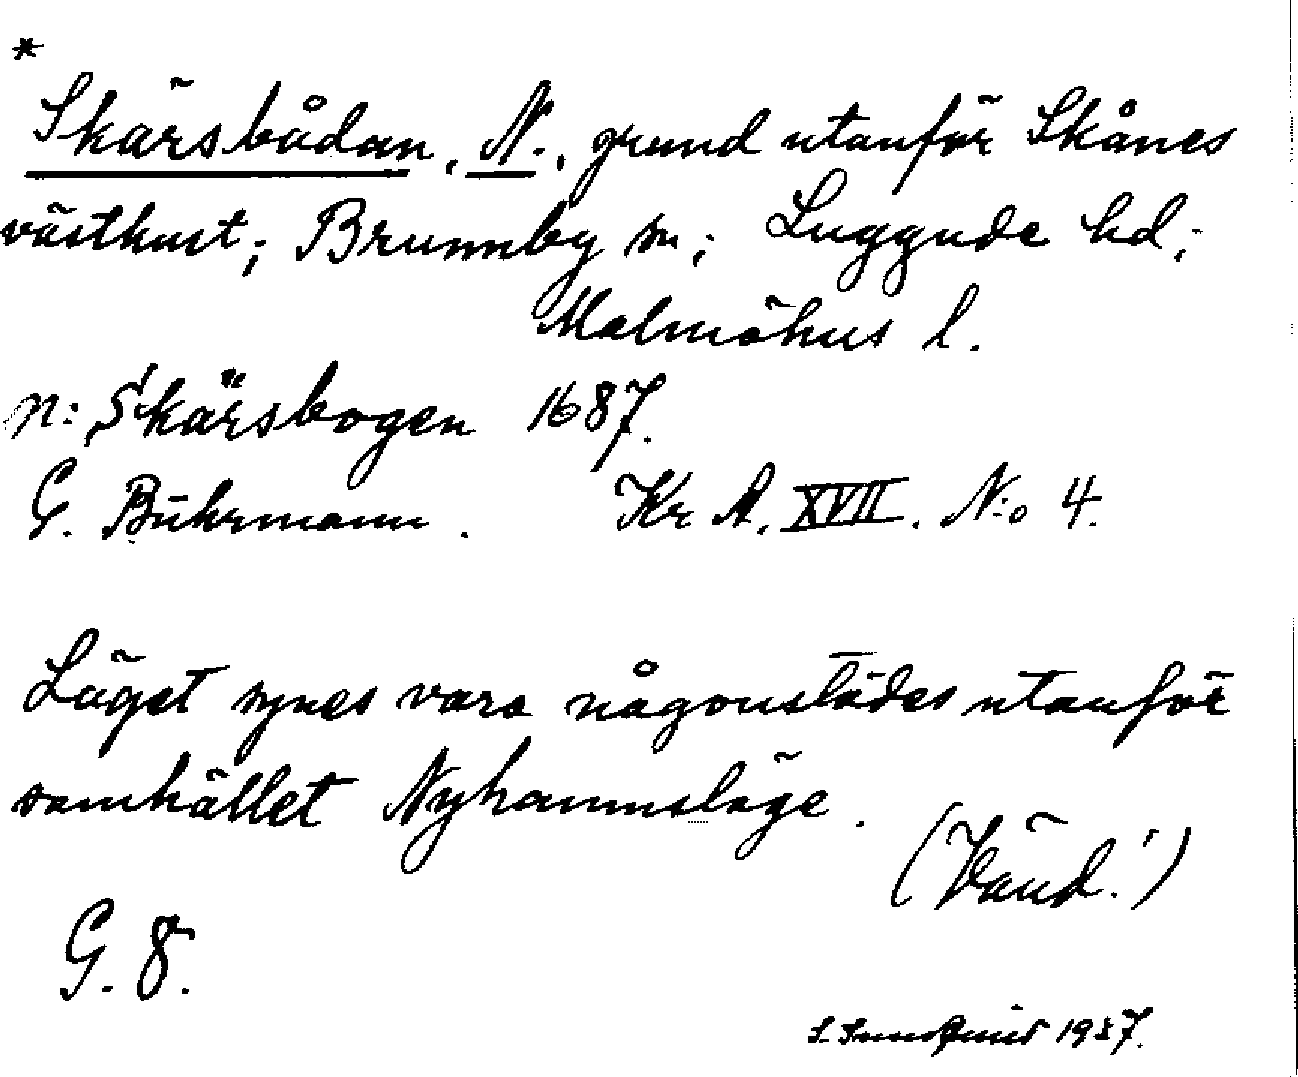 *
Skärsbådan, N., grund utanför Skånes
västkust; Brunnby sn; Luggude hd;
Malmöhus l.
n: Skärsbogen 1687.
G. Buhrmann. Kr A. XVII. N:o 4.
Läget synes vara någonstädes utanför
samhället Nyhamnsläge.
(Vänd!)
G. 8.
1937.